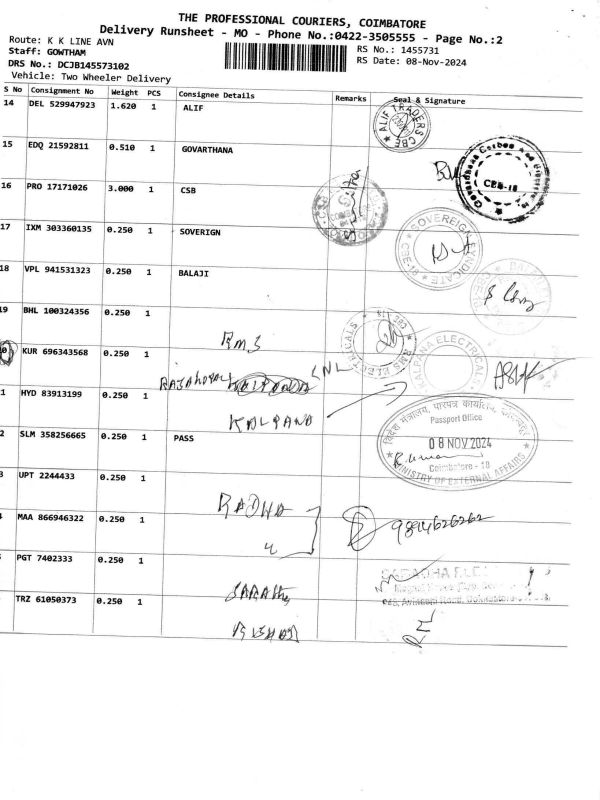 THE PROFESSIONAL COURIERS, COIMBATORE
Delivery Runsheet - MO - Phone No.:0422-3505555 - Page No.:2
Route: K K LINE AVN
Staff: GOWTHAM
DRS No.: DCJB145573102
Vehicle: Two Wheeler Delivery
RS No.: 1455731
RS Date: 08-Nov-2024
S No Consignment No Weight PCS Consignee Details Remarks Seal & Signature
14 DEL 529947923 1.620 1 ALIF
ALIF TRADERS CBE
15 EDQ 21592811 0.510 1 GOVARTHANA
CBE-18
16 PRO 17171026 3.000 1 CSB
17 IXM 303360135 0.250 1 SOVERIGN
SOVEREIGN SYNDICATE
18 VPL 941531323 0.250 1 BALAJI
19 BHL 100324356 0.250 1
RMS
RMS ELECTRICALS CBE-18
0 KUR 696343568 0.250 1
KALPANA ELECTRICALS
1 HYD 83913199 0.250 1
KALPANA
2 SLM 358256665 0.250 1 PASS
विदेश मंत्रालय, पारपत्र कार्यालय, कोयम्बत्तूर
Passport Office
08 NOV 2024
Coimbatore - 18
MINISTRY OF EXTERNAL AFFAIRS
3 UPT 2244433 0.250 1
RADHA
MAA 866946322 0.250 1
PGT 7402333 0.250 1
TRZ 61050373 0.250 1